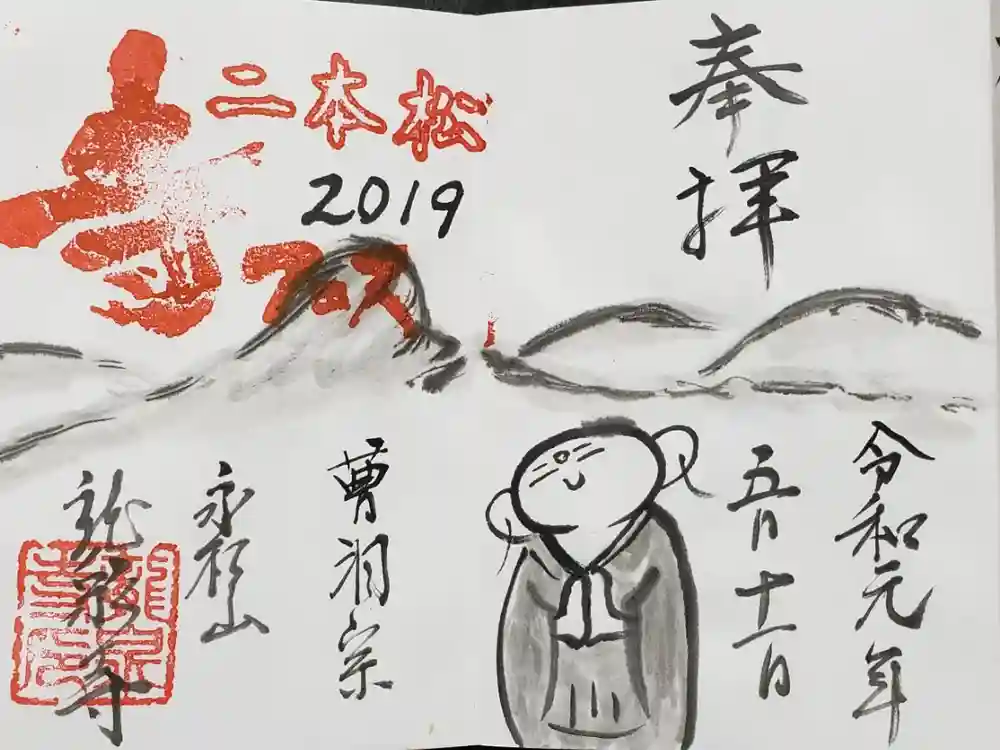 奉拝
令和元年
五月十一日
二本松
2019
寺フェス
曹洞宗
永松山
龍泉寺